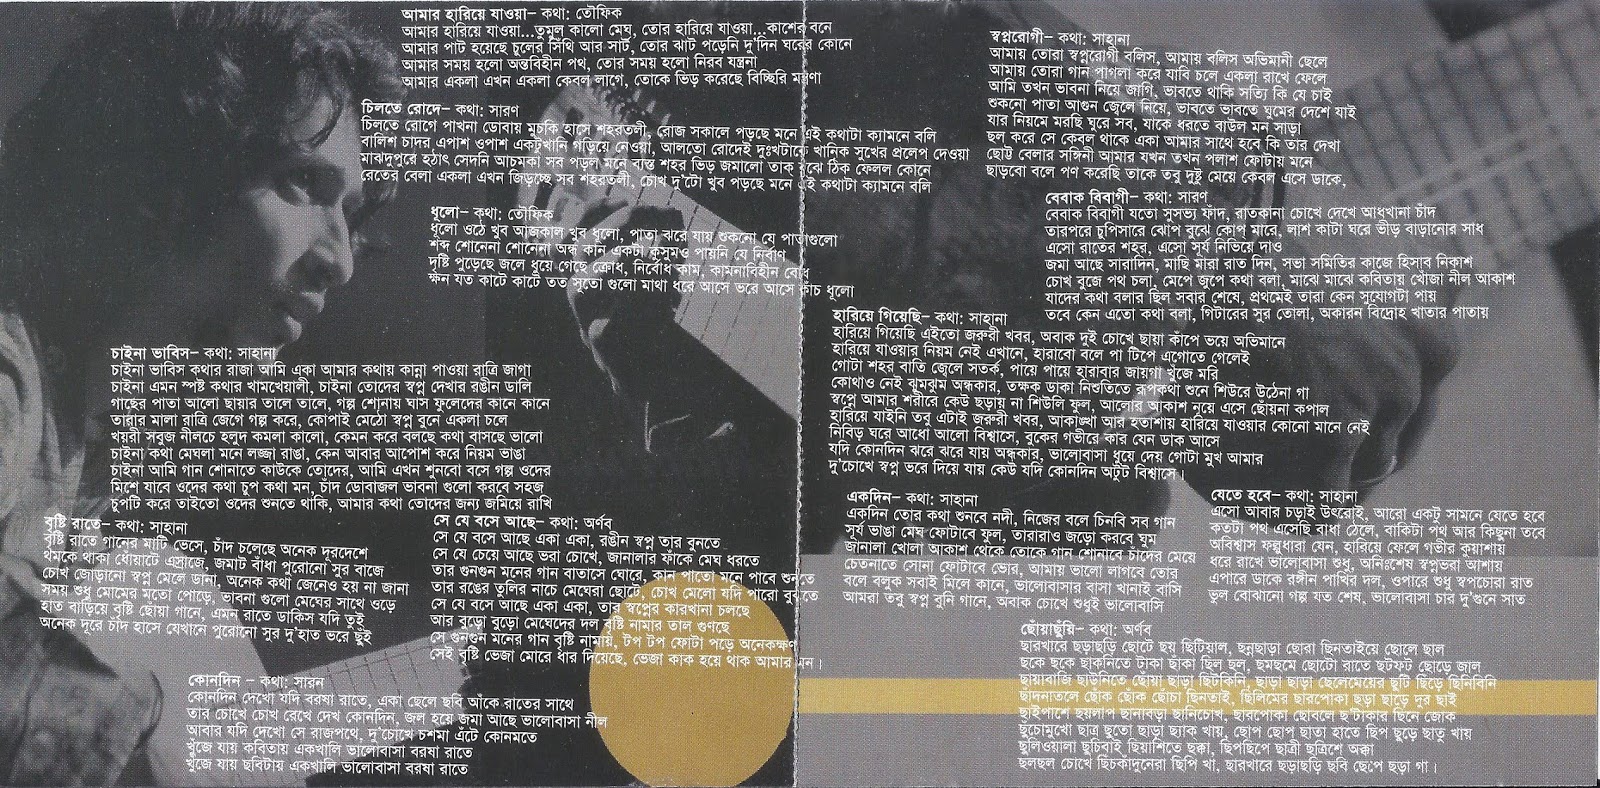 আমার হারিয়ে যাওয়া– কথা: তৌফিক
আমার হারিয়ে যাওয়া...তুমুল কালো মেঘ, তোর হারিয়ে যাওয়া...কাশের বনে
আমার পাট হয়েছে চুলের সিঁথি আর সার্ট, তোর ঝাট পড়েনি দু'দিন ঘরের কোনে
আমার সময় হলো অন্তবিহীন পথ, তোর সময় হলো নিরব যন্ত্রনা
আমার একলা এখন একলা কেবল লাগে, তোকে ভিড় করেছে বিচ্ছিরি মন্ত্রণা
চিলতে রোদে– কথা: সারণ
চিলতে রোগে পাখনা ডোবায় মুচকি হাসে শহরতলী, রোজ সকালে পড়ছে মনে এই কথাটা ক্যামনে বলি
বালিশ চাদর এপাশ ওপাশ একটুখানি গড়িয়ে নেওয়া, আলতো রোদেই দুঃখটাকে খানিক সুখের প্রলেপ দেওয়া
মাঝদুপুরে হঠাৎ সেদনি আচমকা সব পড়ল মনে ব্যস্ত শহর ভিড় জমালো তাক বুঝে ঠিক ফেলল কোনে
রেতের বেলা একলা এখন জিড়চ্ছে সব শহরতলী, চোখ দু'টো খুব পড়ছে মনে এই কথাটা ক্যামনে বলি
ধূলো– কথা: তৌফিক
ধূলো ওঠে খুব আজকাল খুব ধূলো, পাতা ঝরে যায় শুকনো যে পাতাগুলো
শব্দ শোনেনা শোনেনা অন্ধ কান একটা কুসুমও পায়নি যে নির্বাণ
দৃষ্টি পুড়েছে জলে ধুয়ে গেছে ক্রোধ, নির্বোধ কাম, কামনাবিহীন বোধ
ক্ষন যত কাটে কাটে তত সুতো গুলো মাথা ধরে আসে ভরে আসে কাঁচ ধূলো
চাইনা ভাবিস– কথা: সাহানা
চাইনা ভাবিস কথার রাজা আমি একা আমার কথায় কান্না পাওয়া রাত্রি জাগা
চাইনা এমন স্পষ্ট কথার খামখেয়ালী, চাইনা তোদের স্বপ্ন দেখার রঙীন ডালি
গাছের পাতা আলো ছায়ার তালে তালে, গল্প শোনায় ঘাস ফুলেদের কানে কানে
তারার মালা রাত্রি জেগে গল্প করে, কোপাই মেঠো স্বপ্ন বুনে একলা চলে
খয়রী সবুজ নীলচে হলুদ কমলা কালো, কেমন করে বলছে কথা বাসছে ভালো
চাইনা কথা মেঘলা মনে লজ্জা রাঙা, কেন আবার আপোশ করে নিয়ম ভাঙা
চাইনা আমি গান শোনাতে কাউকে তোদের, আমি এখন শুনবো বসে গল্প ওদের
মিশে যাবে ওদের কথা চুপ কথা মন, চাঁদ ডোবাজল ভাবনা গুলো করবে সহজ
চুপটি করে তাইতো ওদের শুনতে থাকি, আমার কথা তোদের জন্য জমিয়ে রাখি
বৃষ্টি রাতে– কথা: সাহানা
বৃষ্টি রাতে গানের মাটি ভেসে, চাঁদ চলেছে অনেক দূরদেশে
থমকে থাকা ধোঁয়াটে এস্রাজে, জমাট বাঁধা পুরোনো সুর বাজে
চোখ জোড়ানো স্বপ্ন মেলে ডানা, অনেক কথা জেনেও হয় না জানা
সময় শুধু মোমের মতো পোড়ে, ভাবনা গুলো মেঘের সাথে ওড়ে
হাত বাড়িয়ে বৃষ্টি ছোঁয়া গানে, এমন রাতে ডাকিস যদি তুই
অনেক দূরে চাঁদ হাসে যেখানে পুরোনো সুর দু'হাত ভরে ছুঁই
সে যে বসে আছে– কথা: অর্ণব
সে যে বসে আছে একা একা, রঙীন স্বপ্ন তার বুনতে
সে যে চেয়ে আছে ভরা চোখে, জানালার ফাঁকে মেঘ ধরতে
তার গুনগুন মনের গান বাতাসে ঘোরে, কান পাতো মনে পাবে শুনতে
তার রঙের তুলির নাচে মেঘেরা ছোটে, চোখ মেলো যদি পারো বুঝতে
সে যে বসে আছে একা একা, তার স্বপ্নের কারখানা চলছে
আর বুড়ো বুড়ো মেঘেদের দল বৃষ্টি নামার তাল গুণছে
সে গুনগুন মনের গান বৃষ্টি নামায়, টপ টপ ফোটা পড়ে অনেকক্ষণ
সেই বৃষ্টি ভেজা মোরে ধার দিয়েছে, ভেজা কাক হয়ে থাক আমার মন।
কোনদিন – কথা: সারন
কোনদিন দেখো যদি বরষা রাতে, একা ছেলে ছবি আঁকে রাতের সাথে
তার চোখে চোখ রেখে দেখ কোনদিন, জল হয়ে জমা আছে ভালোবাসা নীল
আবার যদি দেখো সে রাজপথে, দু'চোখে চশমা এঁটে কোনমতে
খুঁজে যায় কবিতায় একখালি ভালোবাসা বরষা রাতে
খুঁজে যায় ছবিটায় একখালি ভালোবাসা বরষা রাতে
স্বপ্নরোগী– কথা: সাহানা
আমায় তোরা স্বপ্নরোগী বলিস, আমায় বলিস অভিমানী ছেলে
আমায় তোরা গান পাগলা করে যাবি চলে একলা রাখে ফেলে
আমি তখন ভাবনা নিয়ে জাগি, ভাবতে থাকি সত্যি কি যে চাই
শুকনো পাতা আগুন জ্বেলে নিয়ে, ভাবতে ভাবতে ঘুমের দেশে যাই
যার নিয়মে মরছি ঘুরে সব, যাকে ধরতে বাউল মন সাড়া
ছল করে সে কেবল থাকে একা আমার সাথে হবে কি তার দেখা
ছোট্ট বেলার সঙ্গিনী আমার যখন তখন পলাশ ফোটায় মনে
ছাড়বো বলে পণ করেছি তাকে তবু দুষ্টু মেয়ে কেবল এসে ডাকে,
বেবাক বিবাগী– কথা: সারণ
বেবাক বিবাগী যতো সুসভ্য ফাঁদ, রাতকানা চোখে দেখে আধখানা চাঁদ
তারপরে চুপিসারে ঝোপ বুঝে কোপ মারে, লাশ কাটা ঘরে ভীড় বাড়ানোর সাধ
এসো রাতের শহর, এসো সূর্য নিভিয়ে দাও
জমা আছে সারাদিন, মাছি মারা রাত দিন, সভা সমিতির কাজে হিসাব নিকাশ
চোখ বুজে পথ চলা, মেপে জুপে কথা বলা, মাঝে মাঝে কবিতায় খোঁজা নীল আকাশ
যাদের কথা বলার ছিল সবার শেষে, প্রথমেই তারা কেন সুযোগটা পায়
তবে কেন এতো কথা বলা, গিটারের সুর তোলা, অকারন বিদ্রোহ খাতার পাতায়
হারিয়ে গিয়েছি– কথা: সাহানা
হারিয়ে গিয়েছি এইতো জরুরী খবর, অবাক দুই চোখে ছায়া কাঁপে ভয়ে অভিমানে
হারিয়ে যাওয়ার নিয়ম নেই এখানে, হারাবো বলে পা টিপে এগোতে গেলেই
গোটা শহর বাতি জ্বেলে সতর্ক, পায়ে পায়ে হারাবার জায়গা খুঁজে মরি
কোথাও নেই ঝুমঝুম অন্ধকার, তক্ষক ডাকা নিশুতিতে রূপকথা শুনে শিউরে উঠেনা গা
স্বপ্নে আমার শরীরে কেউ ছড়ায় না শিউলি ফুল, আলোর আকাশ নুয়ে এসে ছোঁয়না কপাল
হারিয়ে যাইনি তবু এটাই জরুরী খবর, আকাঙ্খা আর হতাশায় হারিয়ে যাওয়ার কোনো মানে নেই
নিবিড় ঘরে আধো আলো বিশ্বাসে, বুকের গভীরে কার যেন ডাক আসে
যদি কোনদিন ঝরে ঝরে যায় অন্ধকার, ভালোবাসা ধুয়ে দেয় গোটা মুখ আমার
দু'চোখে স্বপ্ন ভরে দিয়ে যায় কেউ যদি কোনদিন অটুট বিশ্বাসে।
একদিন– কথা: সাহানা
একদিন তোর কথা শুনবে নদী, নিজের বলে চিনবি সব গান
সূর্য ভাঙা মেঘ ফোটাবে ফুল, তারারাও জড়ো করবে ঘুম
জানালা খোলা আকাশ থেকে তোকে গান শোনাবে চাঁদের মেয়ে
চেতনাতে সোনা ফোটাবে ভোর, আমায় ভালো লাগবে তোর
বলে বলুক সবাই মিলে কানে, ভালোবাসার বাসা খানাই বাসি
আমরা তবু স্বপ্ন বুনি গানে, অবাক চোখে শুধুই ভালোবাসি
যেতে হবে– কথা: সাহানা
এসো আবার চড়াই উৎরোই, আরো একটু সামনে যেতে হবে
কতটা পথ এসেছি বাধা ঠেলে, বাকিটা পথ আর কিছুনা তবে
অবিশ্বাস ফল্গুধারা যেন, হারিয়ে ফেলে গভীর কুয়াশায়
ধরে রাখে ভালোবাসা শুধু, অনিঃশেষ স্বপ্নভরা আশায়
এপারে ডাকে রঙ্গীন পাখির দল, ওপারে শুধু স্বপচোরা রাত
ভুল বোঝানো গল্প যত শেষ, ভালোবাসা চার দু'গুনে সাত
ছোঁয়াছুঁয়ি– কথা: অর্ণব
ছারখারে ছড়াছড়ি ছোটে ছয় ছিটিয়াল, ছন্নছাড়া ছোরা ছিনতাইয়ে ছোলে ছাল
ছকে ছকে ছাকনিতে টাকা ছাঁকা ছিল ছল, ছমছমে ছোটো রাতে ছটফট ছোড়ে জাল
ছায়াবাজি ছাউনিতে ছোঁয়া ছাড়া ছিটকিনি, ছাড়া ছাড়া ছেলেমেয়ের ছুটি ছিঁড়ে ছিনিবিনি
ছাঁদনাতলে ছোঁক ছোঁক ছোঁচা ছিনতাই, ছিলিমের ছারপোকা ছড়া ছাড়ে দূর ছাই
ছাইপাশে ছয়লাপ ছানাবড়া ছানিচোখ, ছারপোকা ছোবলে ছ'টাকার ছিনে জোক
ছুঁচোমুখো ছাত্র ছুতো ছাড়া ছ্যাক খায়, ছোপ ছোপ ছাতা হাতে ছিপ ছুড়ে ছাতু খায়
ছুলিওয়ালা ছুচিবাই ছিয়াশিতে ছক্কা, ছিপছিপে ছাত্রী ছত্রিশে অক্কা
ছলছল চোখে ছিঁচকাঁদুনেরা ছিপি খা, ছারখারে ছড়াছড়ি ছবি ছেপে ছড়া গা।